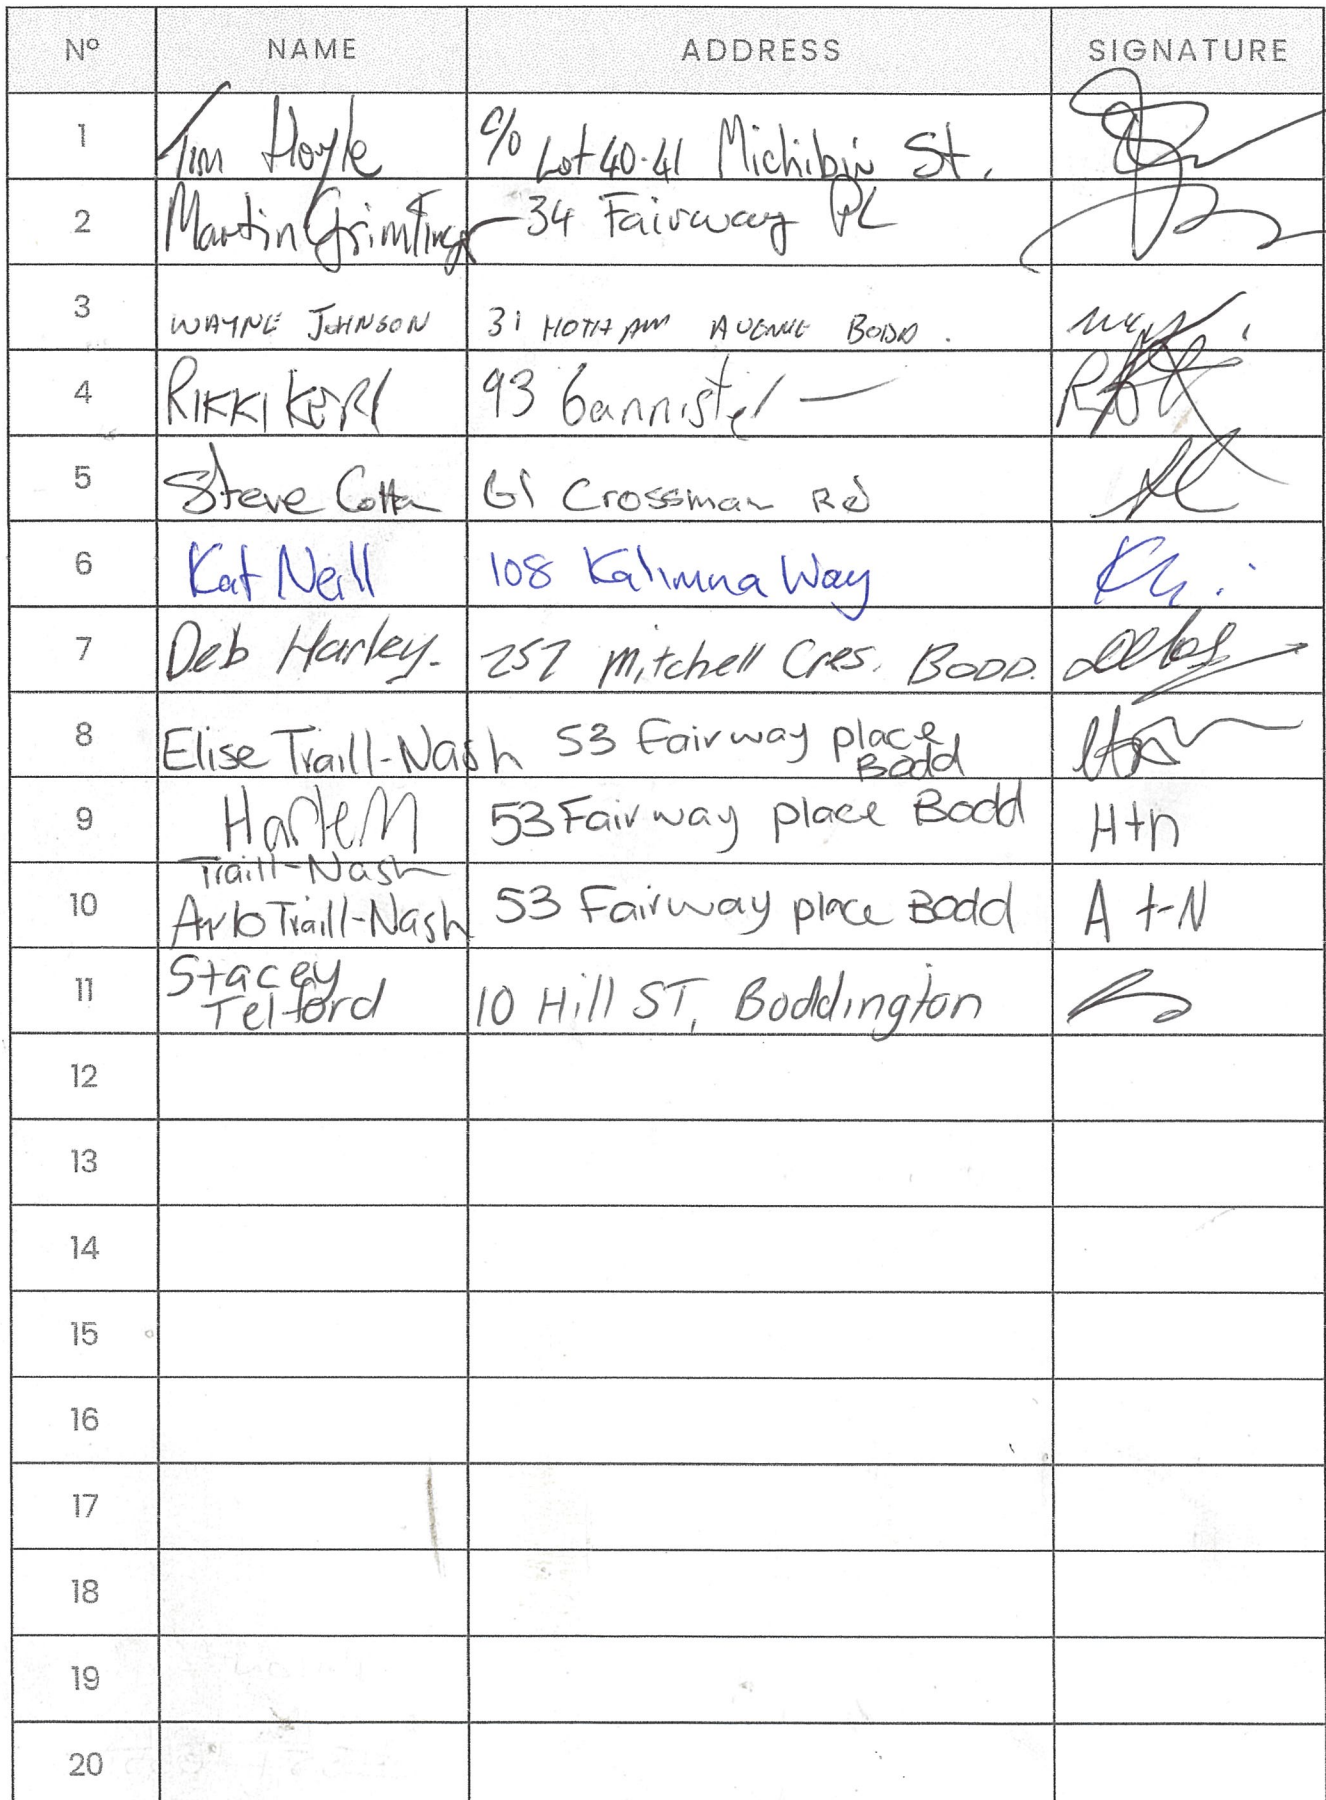 Nº NAME ADDRESS SIGNATURE
1 Tim Hoyle c/o Lot 40-41 Michibin St.
2 Martin 34 Fairway PL
3 WAYNE JOHNSON 31 HOTHAM AVENUE BODD.
4 RIKKI KERR 93 bannister
5 Steve Cotta 61 Crossman Rd
6 Kat Neill 108 Kalimna Way
7 Deb Harley. 257 Mitchell Cres. BODD.
8 Elise Traill-Nash 53 Fairway place
Bodd
9 53 Fairway place Bodd H+n
Traill-Nash
10 Arlo Traill-Nash 53 Fairway place Bodd A t-N
11 Stacey
Telford 10 Hill ST, Boddington
12
13
14
15
16
17
18
19
20